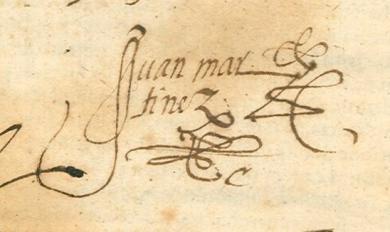 Juan mar
tinez